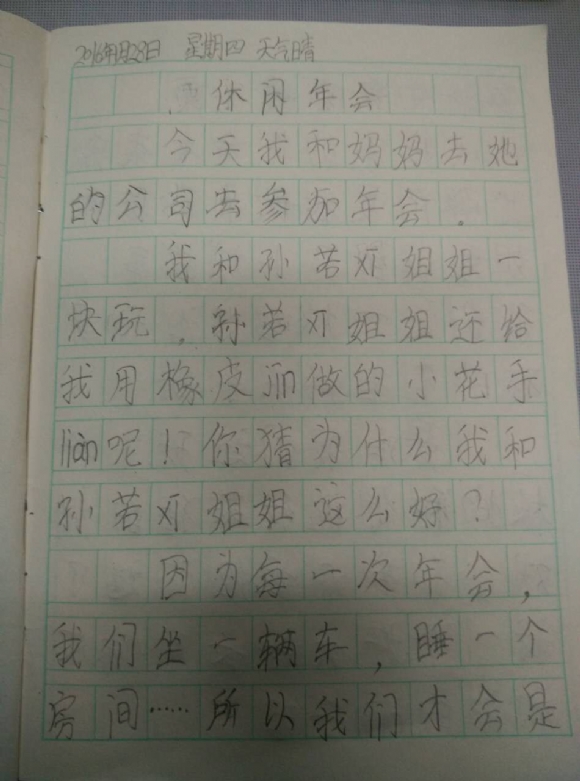 2016年1月28日 星期四 天气晴
休闲年会
今天我和妈妈去她
的公司去参加年会。
我和孙若邓姐姐一
块玩，孙若邓姐姐还给
我用橡皮jīn做的小花手
lián呢！你猜为什么我和
孙若邓姐姐这么好？
因为每一次年会，
我们坐一辆车，睡一个
房间……所以我们才会是